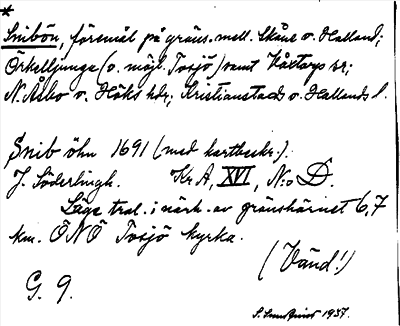 *
Snibön, föremål på gräns. mell. Skåne o. Halland;
Örkelljunga (o. möjl. Tosjö) samt Våxtorps sr;
N. Åsbo o. Höks hdr; Kristianstads o. Hallands l.
Snib öhn 1691 (med kartbeskr.):
J. Söderlingh. Kr. A, XVI, N:o D.
Läge trol. i närh. av gränshörnet 6,7
km. ÖNÖ Tosjö kyrka.
(Vänd!)
G. 9.
S. Sundqvist 1937.